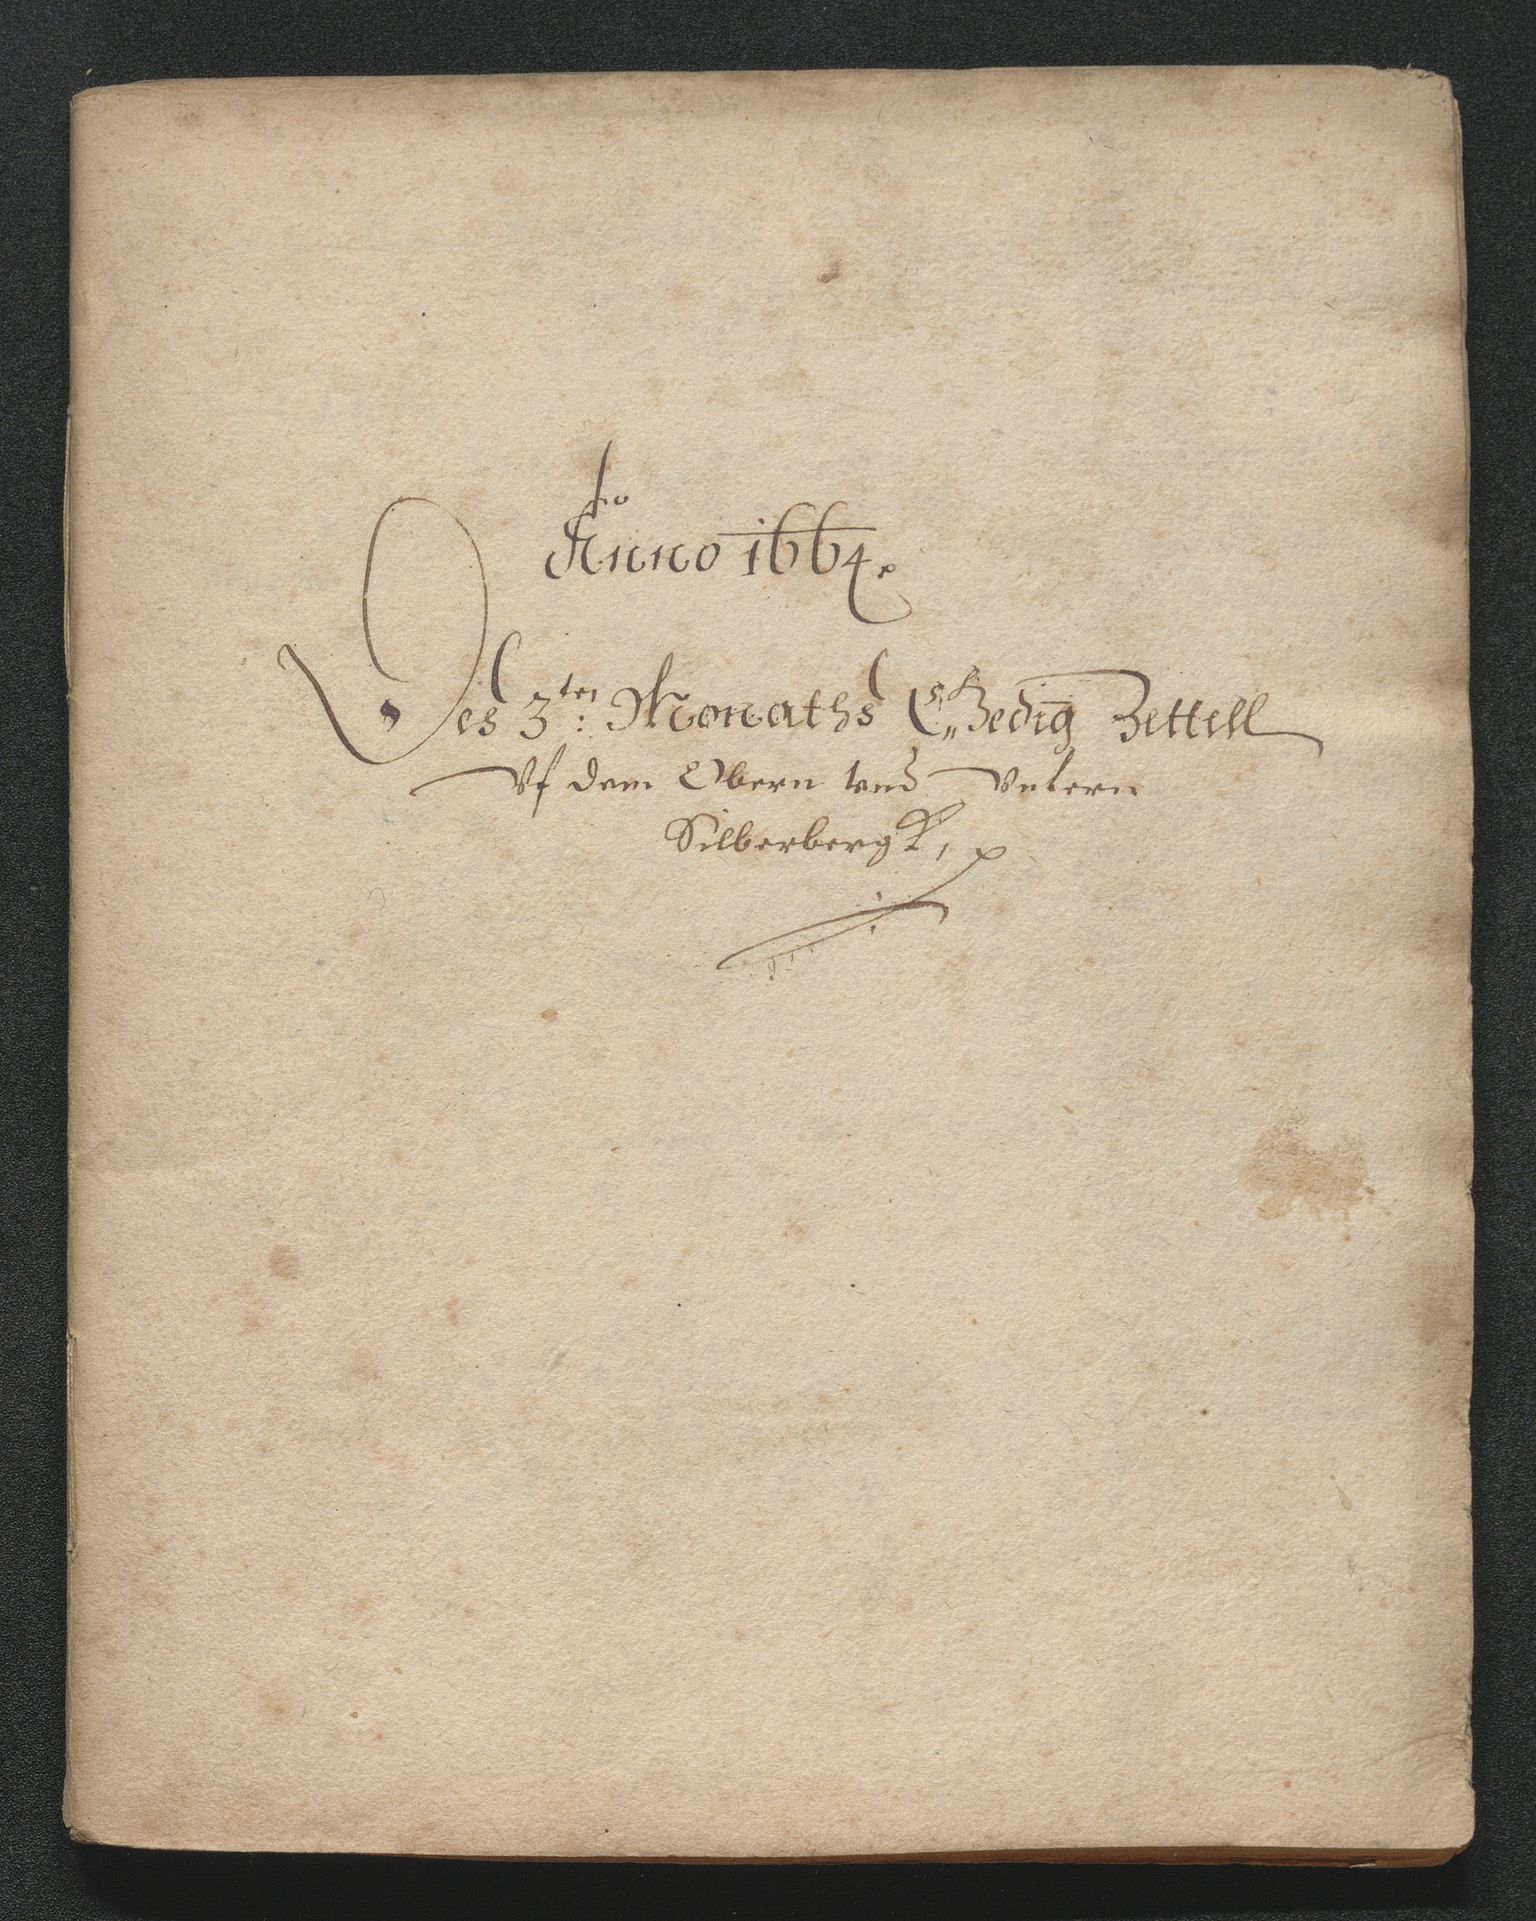 Anno 1664.
Des 3ten: Monaths Zedig Zettell
Vf dem Obern vnd Vntern
Silberbergk,